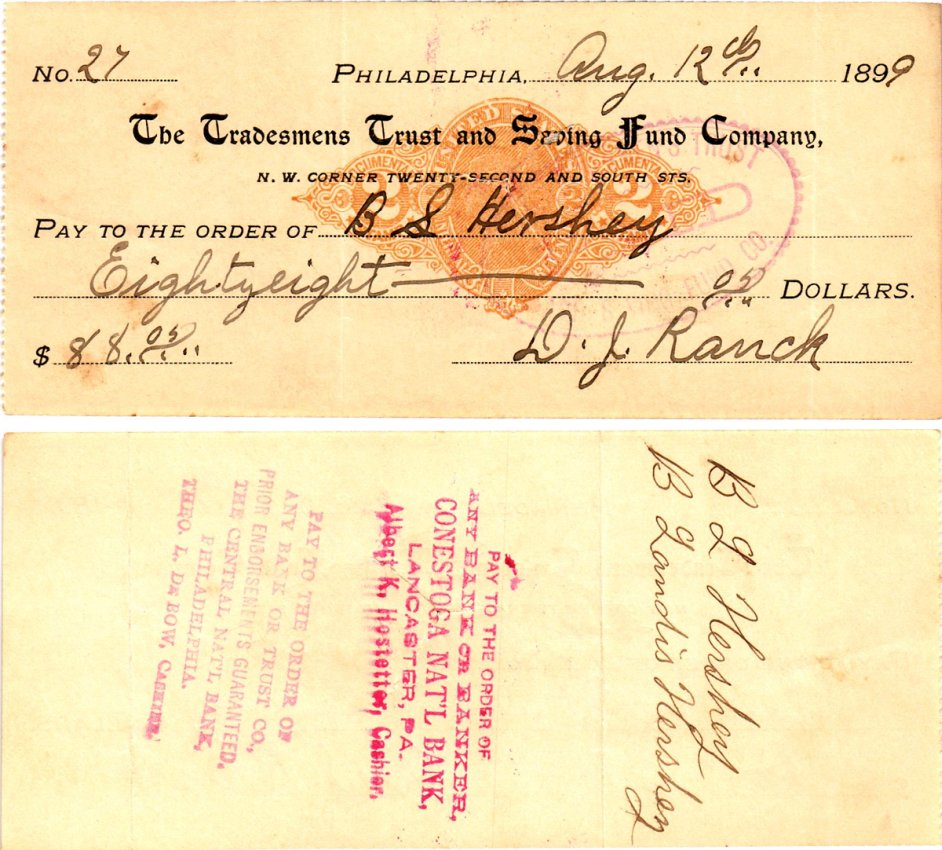 No. 27 PHILADELPHIA, Aug. 12th 1899
The Tradesmens Trust and Saving Fund Company,
N. W. CORNER TWENTY-SECOND AND SOUTH STS.
PAY TO THE ORDER OF B S Hershey
Eightyeight 05 DOLLARS.
$ 88.05 D. J. Ranck
DOCUMENTARY
2 2
TRUST
FUND CO.
B L Hershey
B Landis Hershey
PAY TO THE ORDER OF
ANY BANK OR BANKER,
CONESTOGA NAT'L BANK,
LANCASTER, PA.
Albert K. Hostetter, Cashier.
PAY TO THE ORDER OF
ANY BANK OR TRUST CO.,
PRIOR ENDORSEMENTS GUARANTEED,
THE CENTRAL NAT'L BANK,
PHILADELPHIA.
THEO. L. DE BOW, CASHIER.